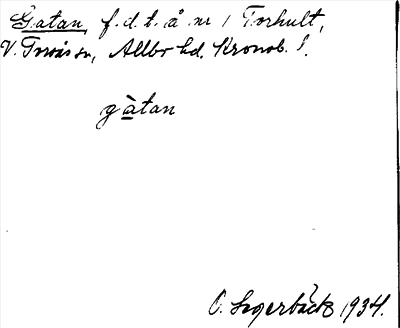 Gatan, f.d.t. å nr 1 Torhult,
V. Torsås sn, Allbo hd. Kronob. l.
gàtan
O. Segerbäck 1934.